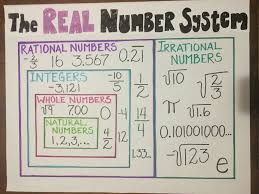 The REAL NUMBER SYSTEM
RATIONAL NUMBERS
-2/3 16 3.567 0.2̅1̅
INTEGERS -10/5
-3,121
WHOLE NUMBERS
√9 7.00 0
NATURAL NUMBERS
1,2,3,...
4/2 -4 14/4
12 1/2
1.33...
IRRATIONAL NUMBERS
√10 √2/3
π √1.6
0.101001000...
-√123 e